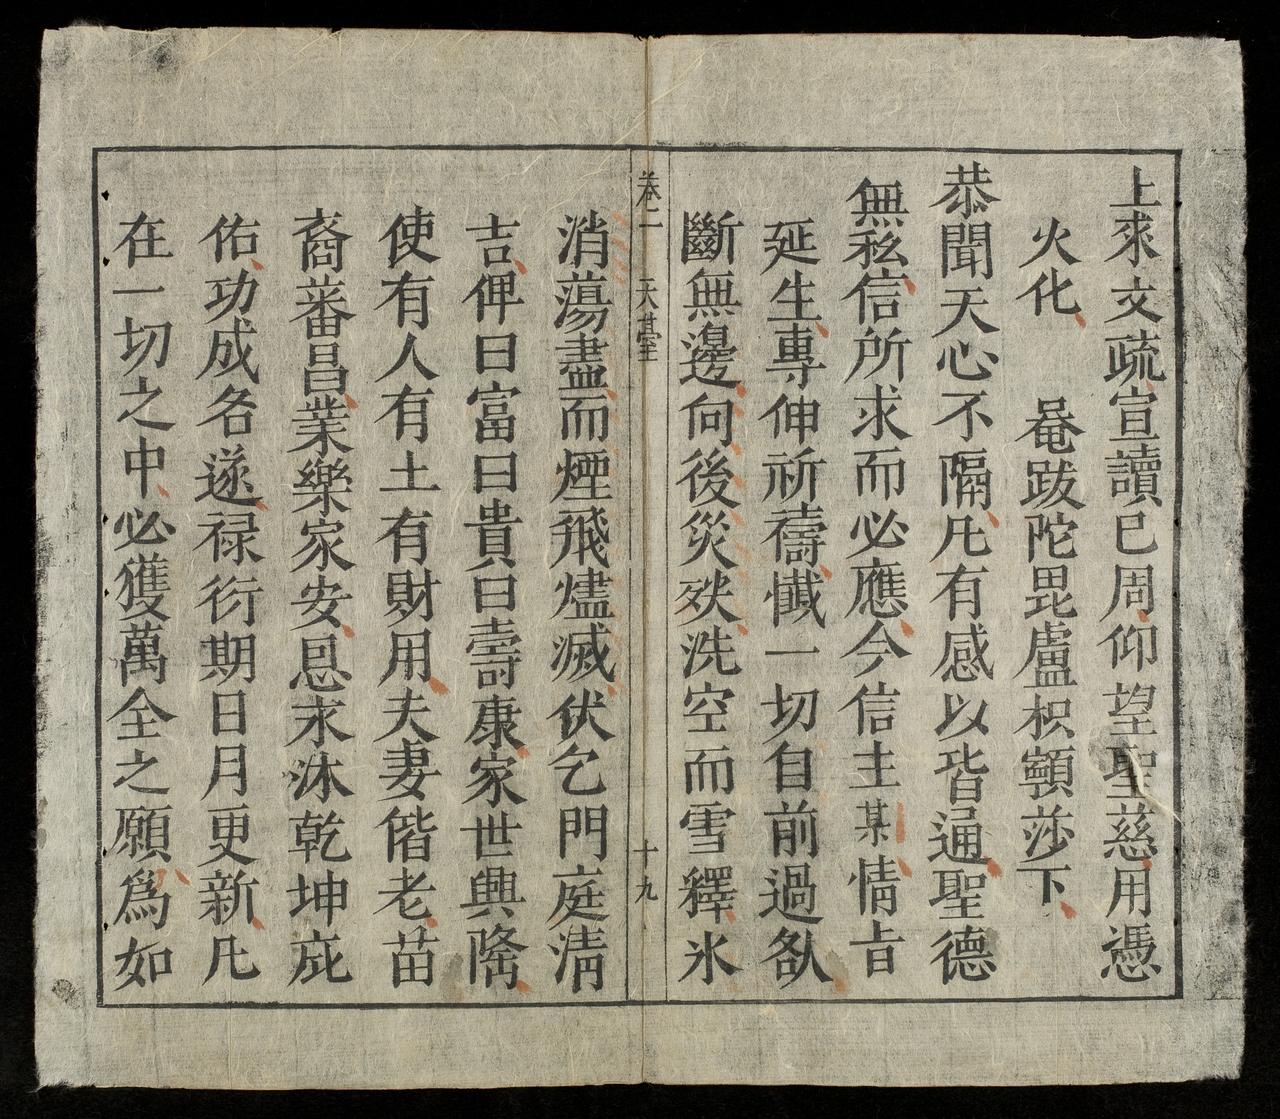 上來文疏宣讀已周仰望聖慈用憑
火化 唵跋陀毘盧枳顐莎下
恭聞天心不隔凡有感以皆通聖德
無私信所求而必應今信主某情旨
延生專伸祈禱懺一切自前過欱
斷無邊向後災殃洗空而雪釋氷
卷二 天基 十九
消蕩盡而煙飛燼滅伏乞門庭清
吉俾曰富曰貴曰壽康家世興隆
使有人有土有財用夫妻偕老苗
裔蕃昌業樂家安恩求沐乾坤庇
佑功成名遂禄衍期日月更新凡
在一切之中必獲萬全之願爲如